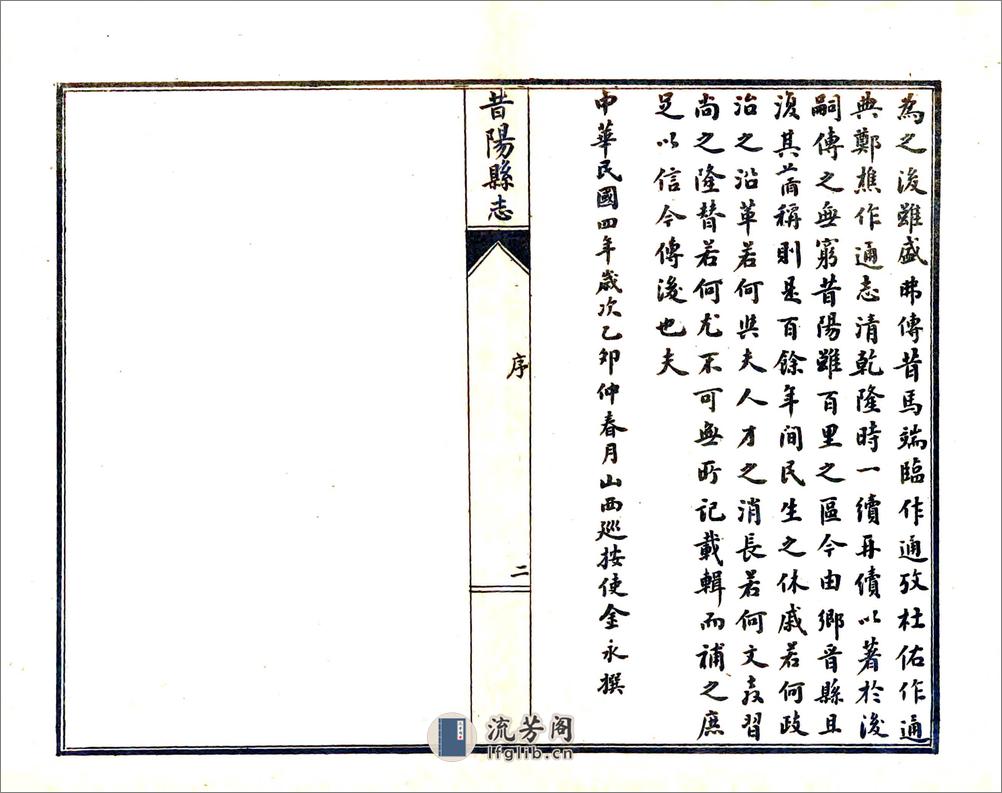 為之後雖盛弗傳昔馬端臨作通攷杜佑作通
典鄭樵作通志清乾隆時一續再續以著於後
嗣傳之無窮昔陽雖百里之區今由鄉晉縣且
復其舊稱則是百餘年間民生之休戚若何政
治之沿革若何與夫人才之消長若何文教習
尚之隆替若何尤不可無所記載輯而補之庶
足以信今傳後也夫
中華民國四年歲次乙卯仲春月山西巡按使金永撰
昔陽縣志
序
二
流芳阁
lfglib.cn